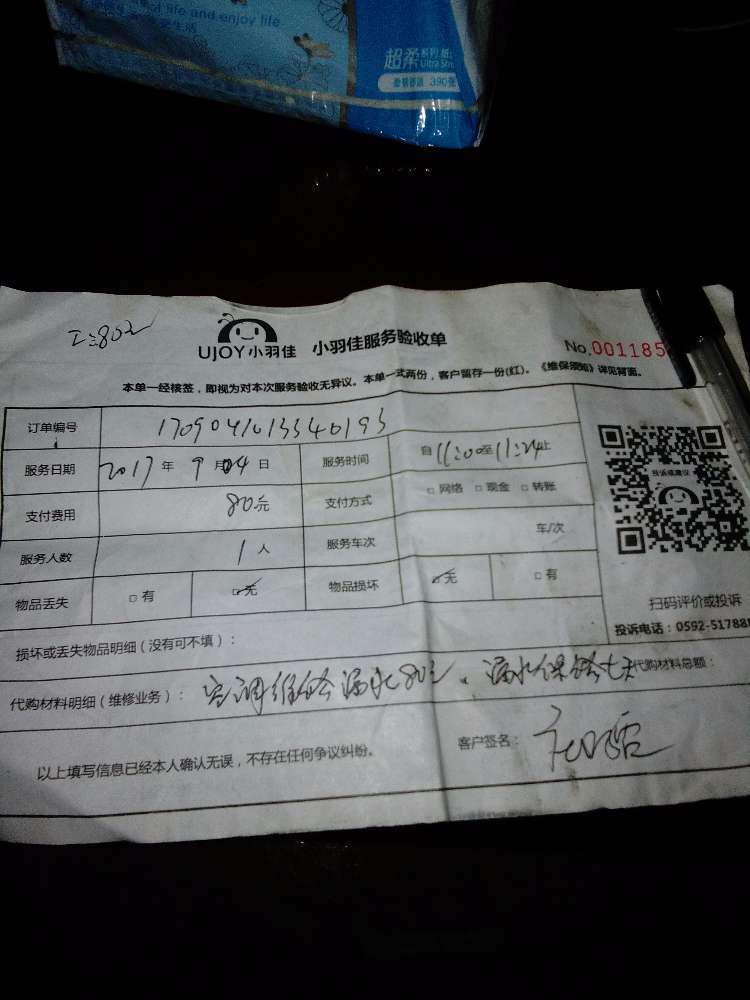 life and enjoy life
超柔系列
UJOY小羽佳 小羽佳服务验收单
No.001185
本单一经核签，即视为对本次服务验收无异议。本单一式两份，客户留存一份(红)。《维保须知》详见背面。
订单编号
服务日期 2017年 9月04日 服务时间 自11:00至11:24止
支付费用 80元 支付方式 □网络 □现金 □转账
服务人数 1人 服务车次 车/次
物品丢失 □有 □无 物品损坏 □无 □有
投诉或建议
扫码评价或投诉
投诉电话：0592-517888
损坏或丢失物品明细（没有可不填）：
代购材料明细（维修业务）： 空调维修漏水80元、漏水保修七天 代购材料总额：
以上填写信息已经本人确认无误，不存在任何争议纠纷。 客户签名：